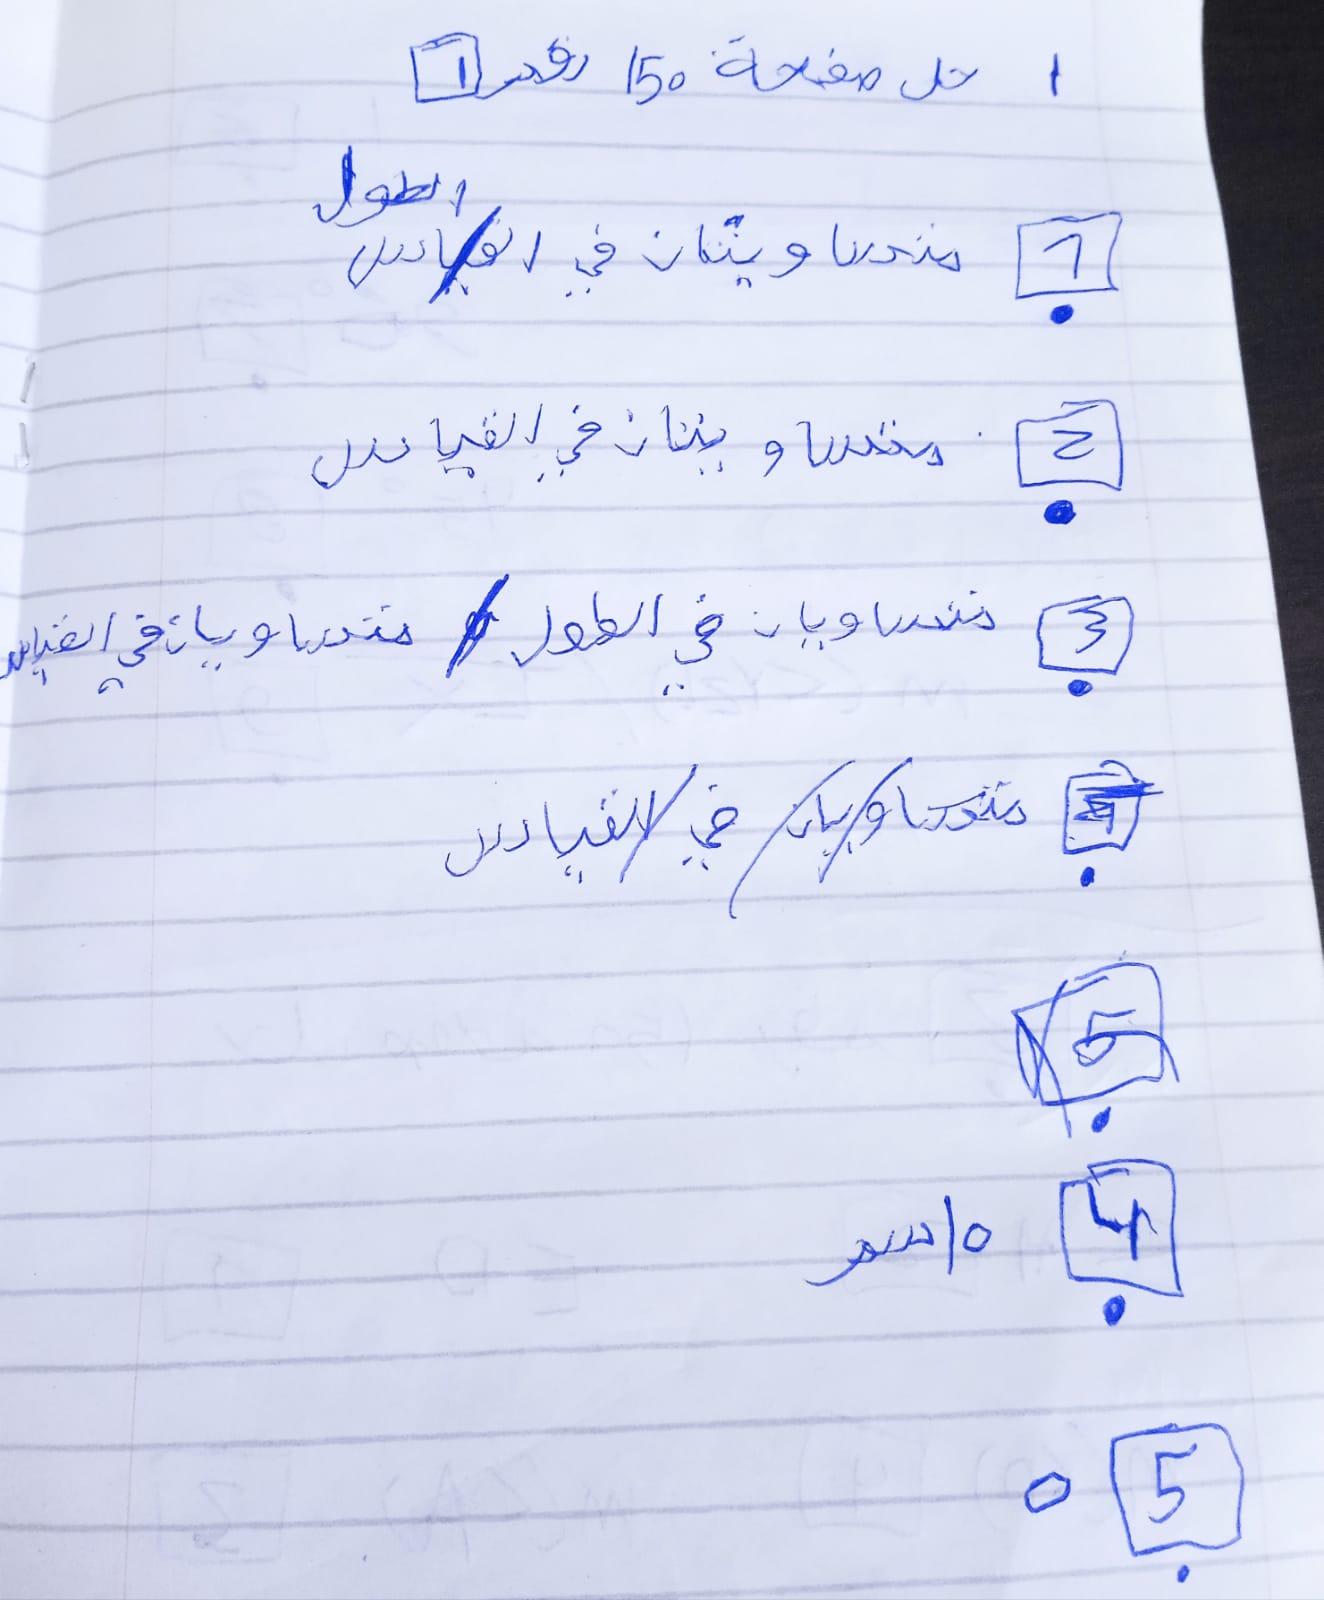 1 حل صفحة 150 رقم 1
الطول
1 متساويتان في القياس
2 متساويتان في القياس
3 متساويان في الطول / متساويان في القياس
4 متساويان في القياس
5
4 5 اسم
5 5